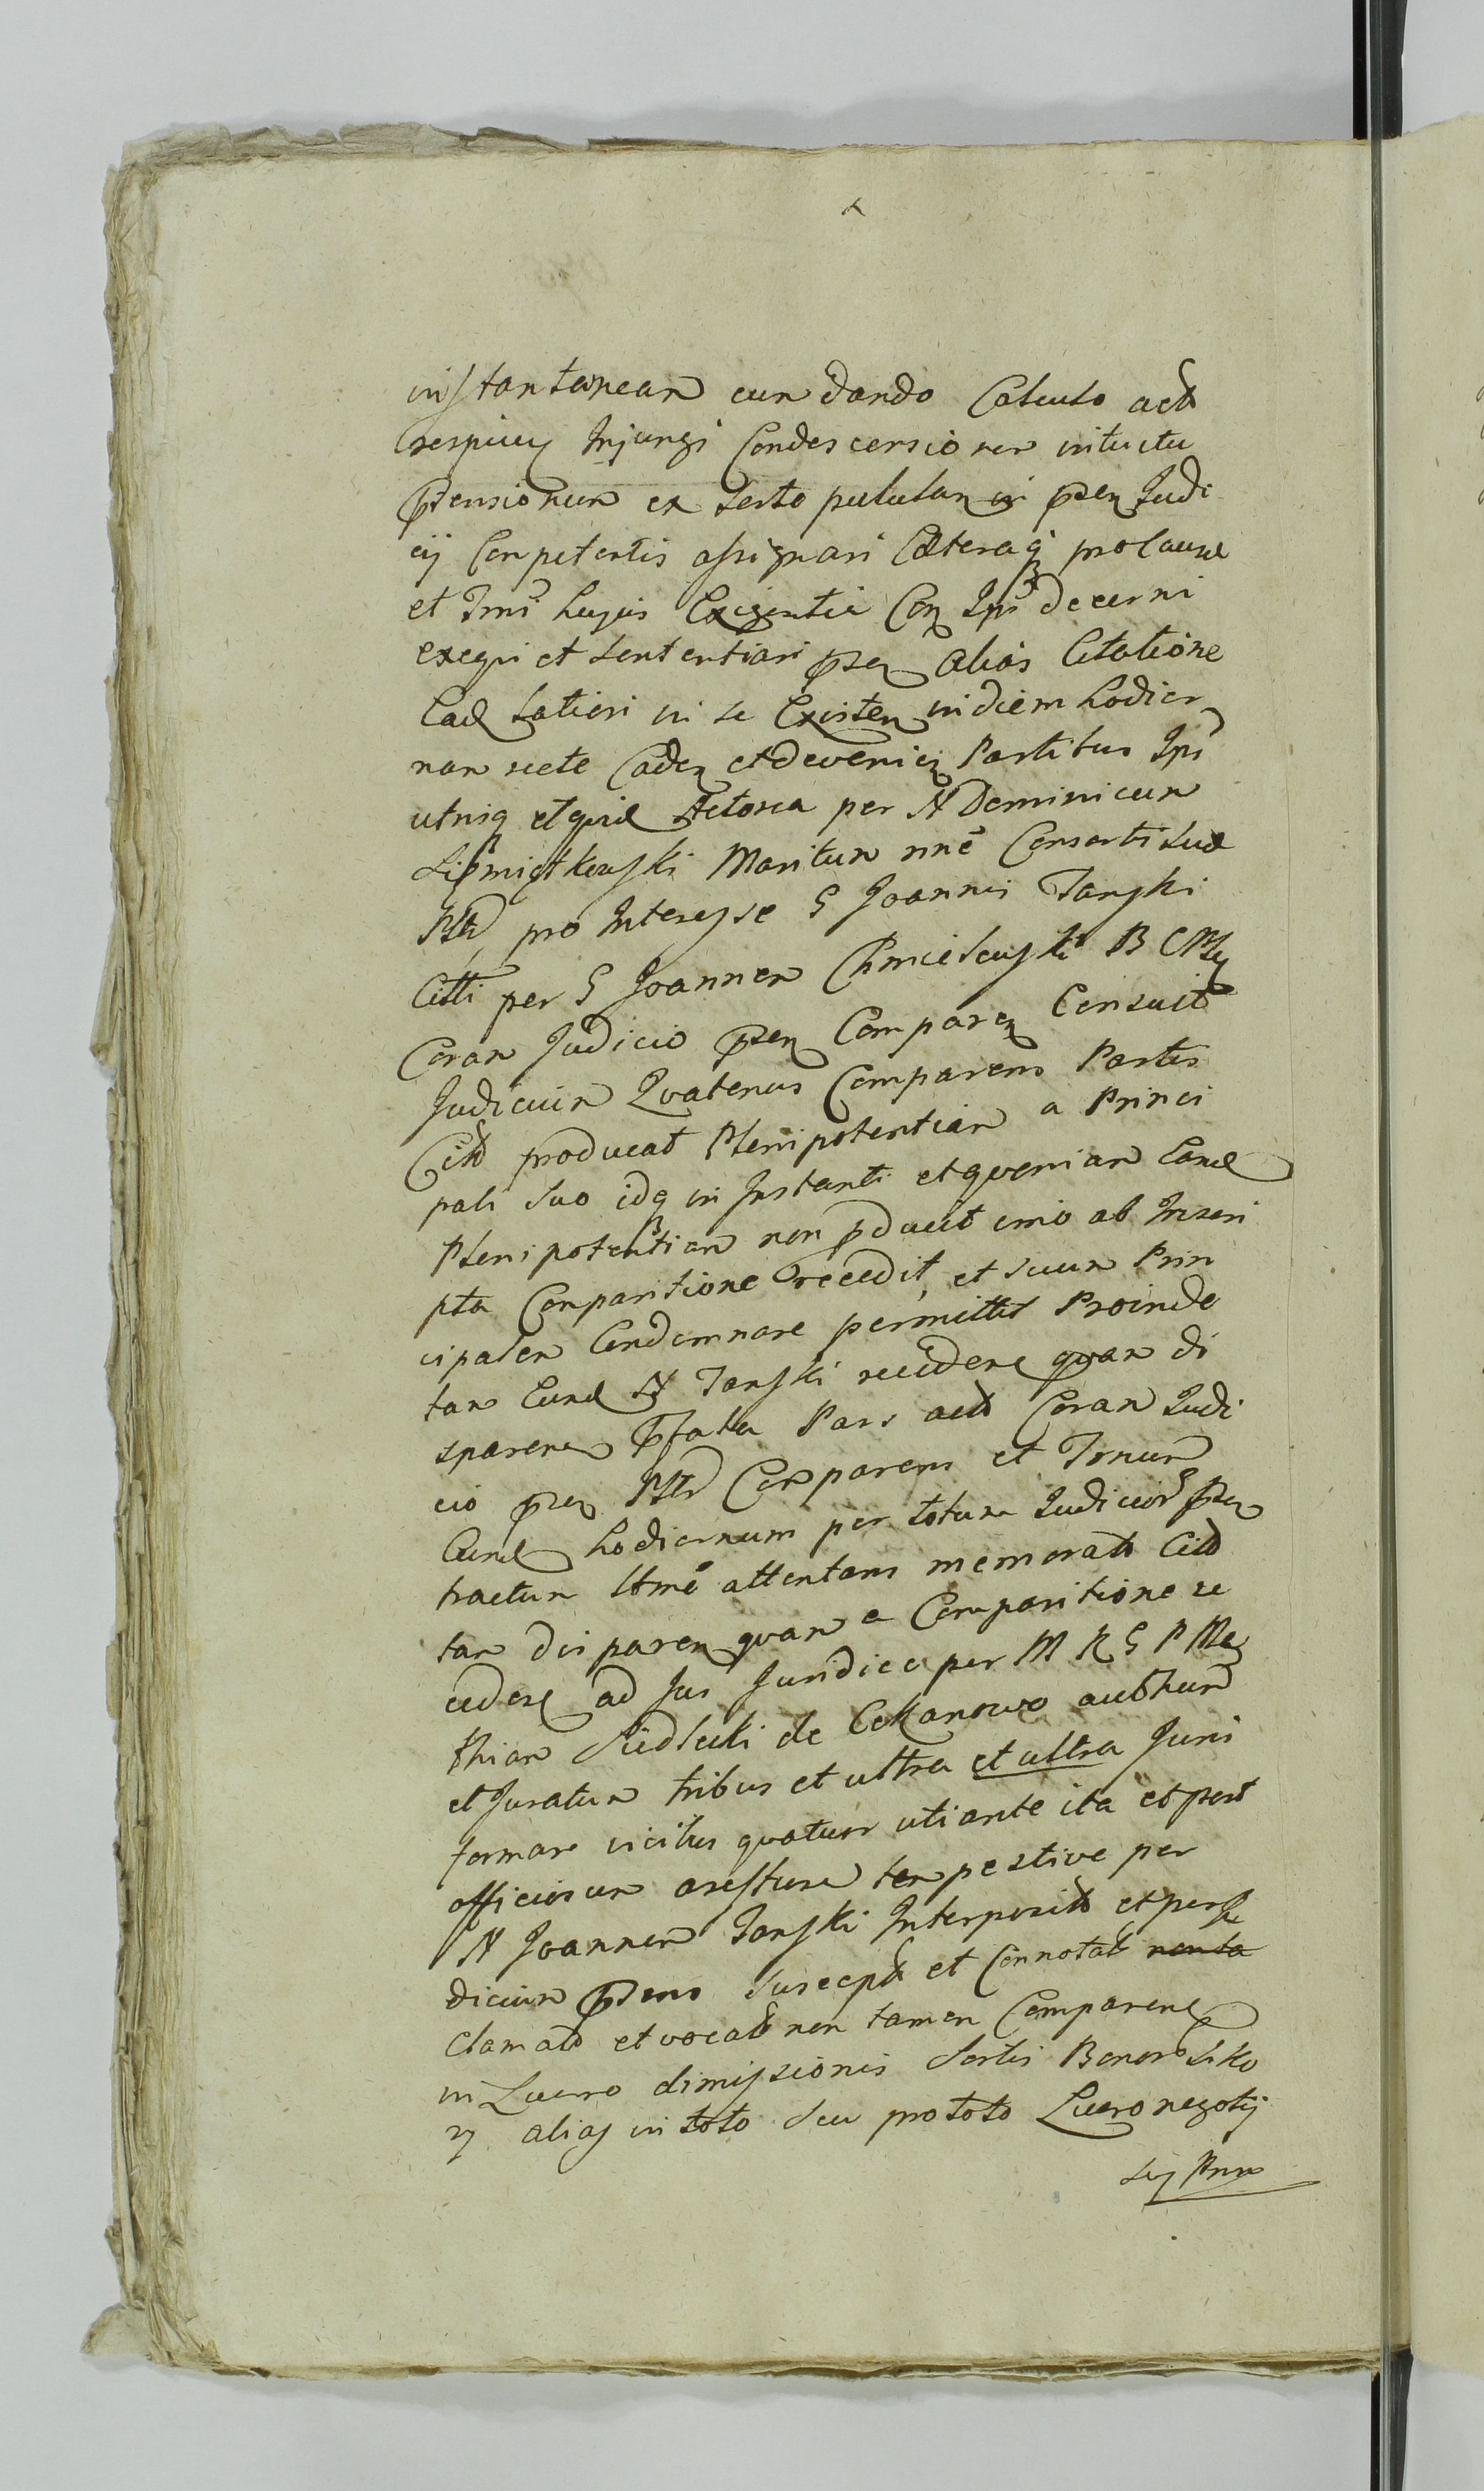 instantanean cun dando Calculo actt
respicien Injungi Condescensionen intuitu
Ptensionun ex Serto pululan in psen Judi
cij Conpetentis assignari Caeteraq pro causae
et Trmi hujus Exigentia Con Ipm decerni
exequi et sententiari psen alias Citatione
Ead latiori in se Existen in diem hodier
nan recte Caden et devenien Partibus Ipis
utrisq et quid Actorea per N Dominicun
Maritun nne Consorti suae
Pltr pro Interesse G Joannis Janski
Citti per G Joannen Chmielewski B C Psn
Coran Judicio psen Comparen Consuit
Judiciun Qvatenus Comparens Partis
Citt producat Plenipotentian a Princi
pali suo idq in Instanti et qvonian Eand
Plenipotentian non pducit imo ab Inscri
pta Conparitione recedit, et suun Prin
cipalen Condemnare permittit Proinde
tan Eund N Janski recedene qvan di
sparene Pfata Pars actt Coran Judi
cio psen Pltr Conparens et Trnun
Eund hodiernum per totun Judicior psen
tractun Ltme attentans memoratt Citt
tan disparen qvan a Comparitione re
cedere ad Jus Juridice per M R G P Ma
thian Siedlecki de Cekanowo authun
et Juratun tribus et ultra et ultra Juri
formare vicibus quatuor uti ante ita et post
officiosun arestun tenpestive per
N Joannen Janski Interpositt et per Ju
diciun Psens Suscept et Connotatt non ta
Clamatt et vocatt non tamen Comparene
in Lucro dimissionis Sortis Bonor
alias in toto seu pro toto Lucro negotij
sui Prnn